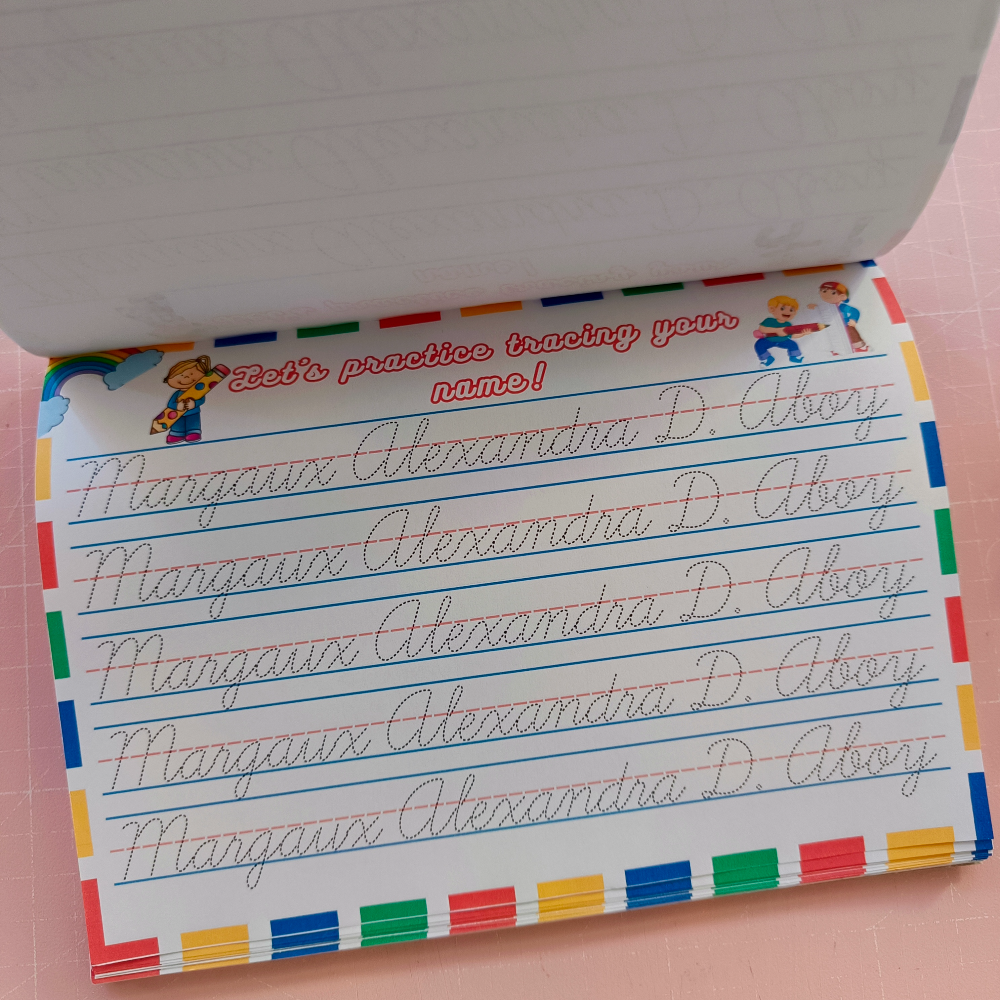 Let's practice tracing your
name!
Margaux Alexandra D. Aboy
Margaux Alexandra D. Aboy
Margaux Alexandra D. Aboy
Margaux Alexandra D. Aboy
Margaux Alexandra D. Aboy